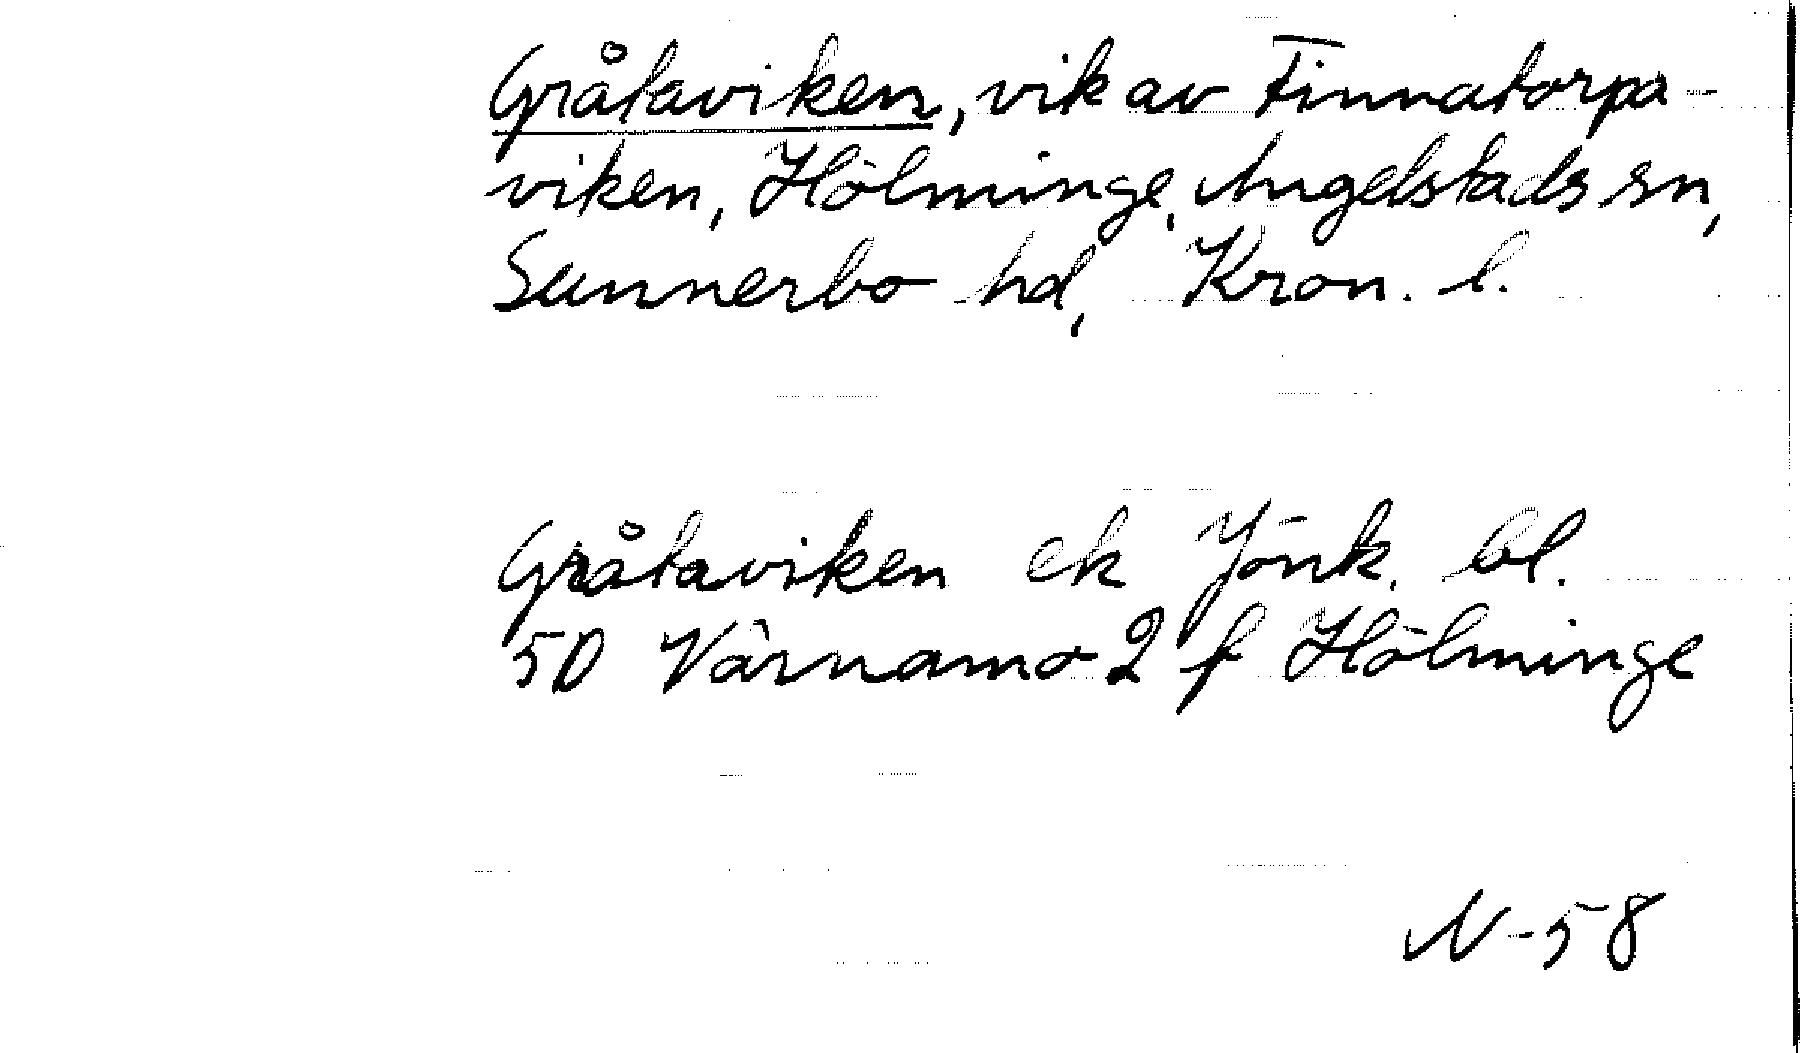 Gråtaviken, vik av Finnatorpa-
viken, Hölminge, Angelstads sn,
Sunnerbo hd, Kron. l.
Gråtaviken ek Jönk. bl.
5D Värnamo 2 f Hölminge
N-58